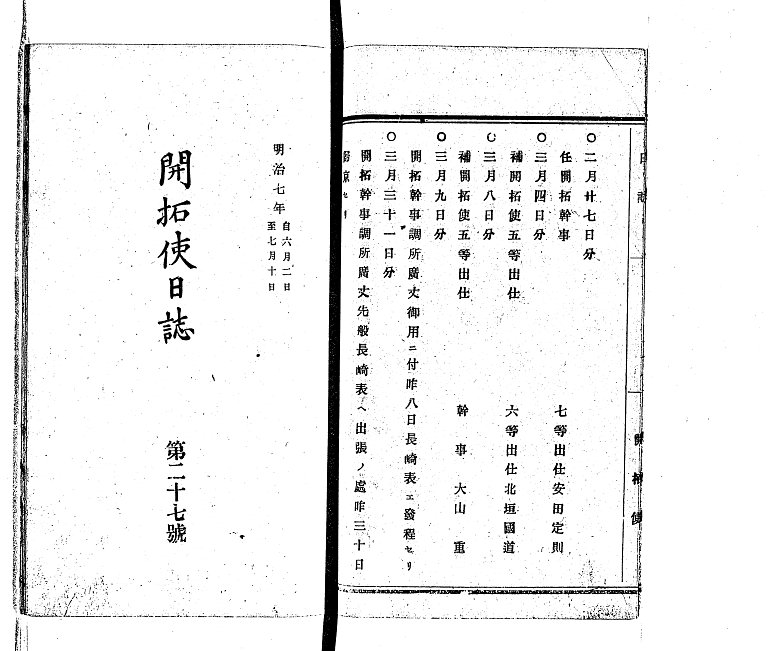 日誌
開拓使
〇二月廿七日分
七等出仕安田定則
任開拓幹事
〇三月四日分
六等出仕北垣國道
補開拓使五等出仕
〇三月八日分
幹事大山重
補開拓使五等出仕
〇三月九日分
開拓幹事調所廣丈御用ニ付昨八日長崎表エ發程セリ
〇三月三十一日分
開拓幹事調所廣丈先般長崎表ヘ出張ノ處昨三十日
歸京セリ
明治七年自六月二日至七月十日
開拓使日誌
第二十七號